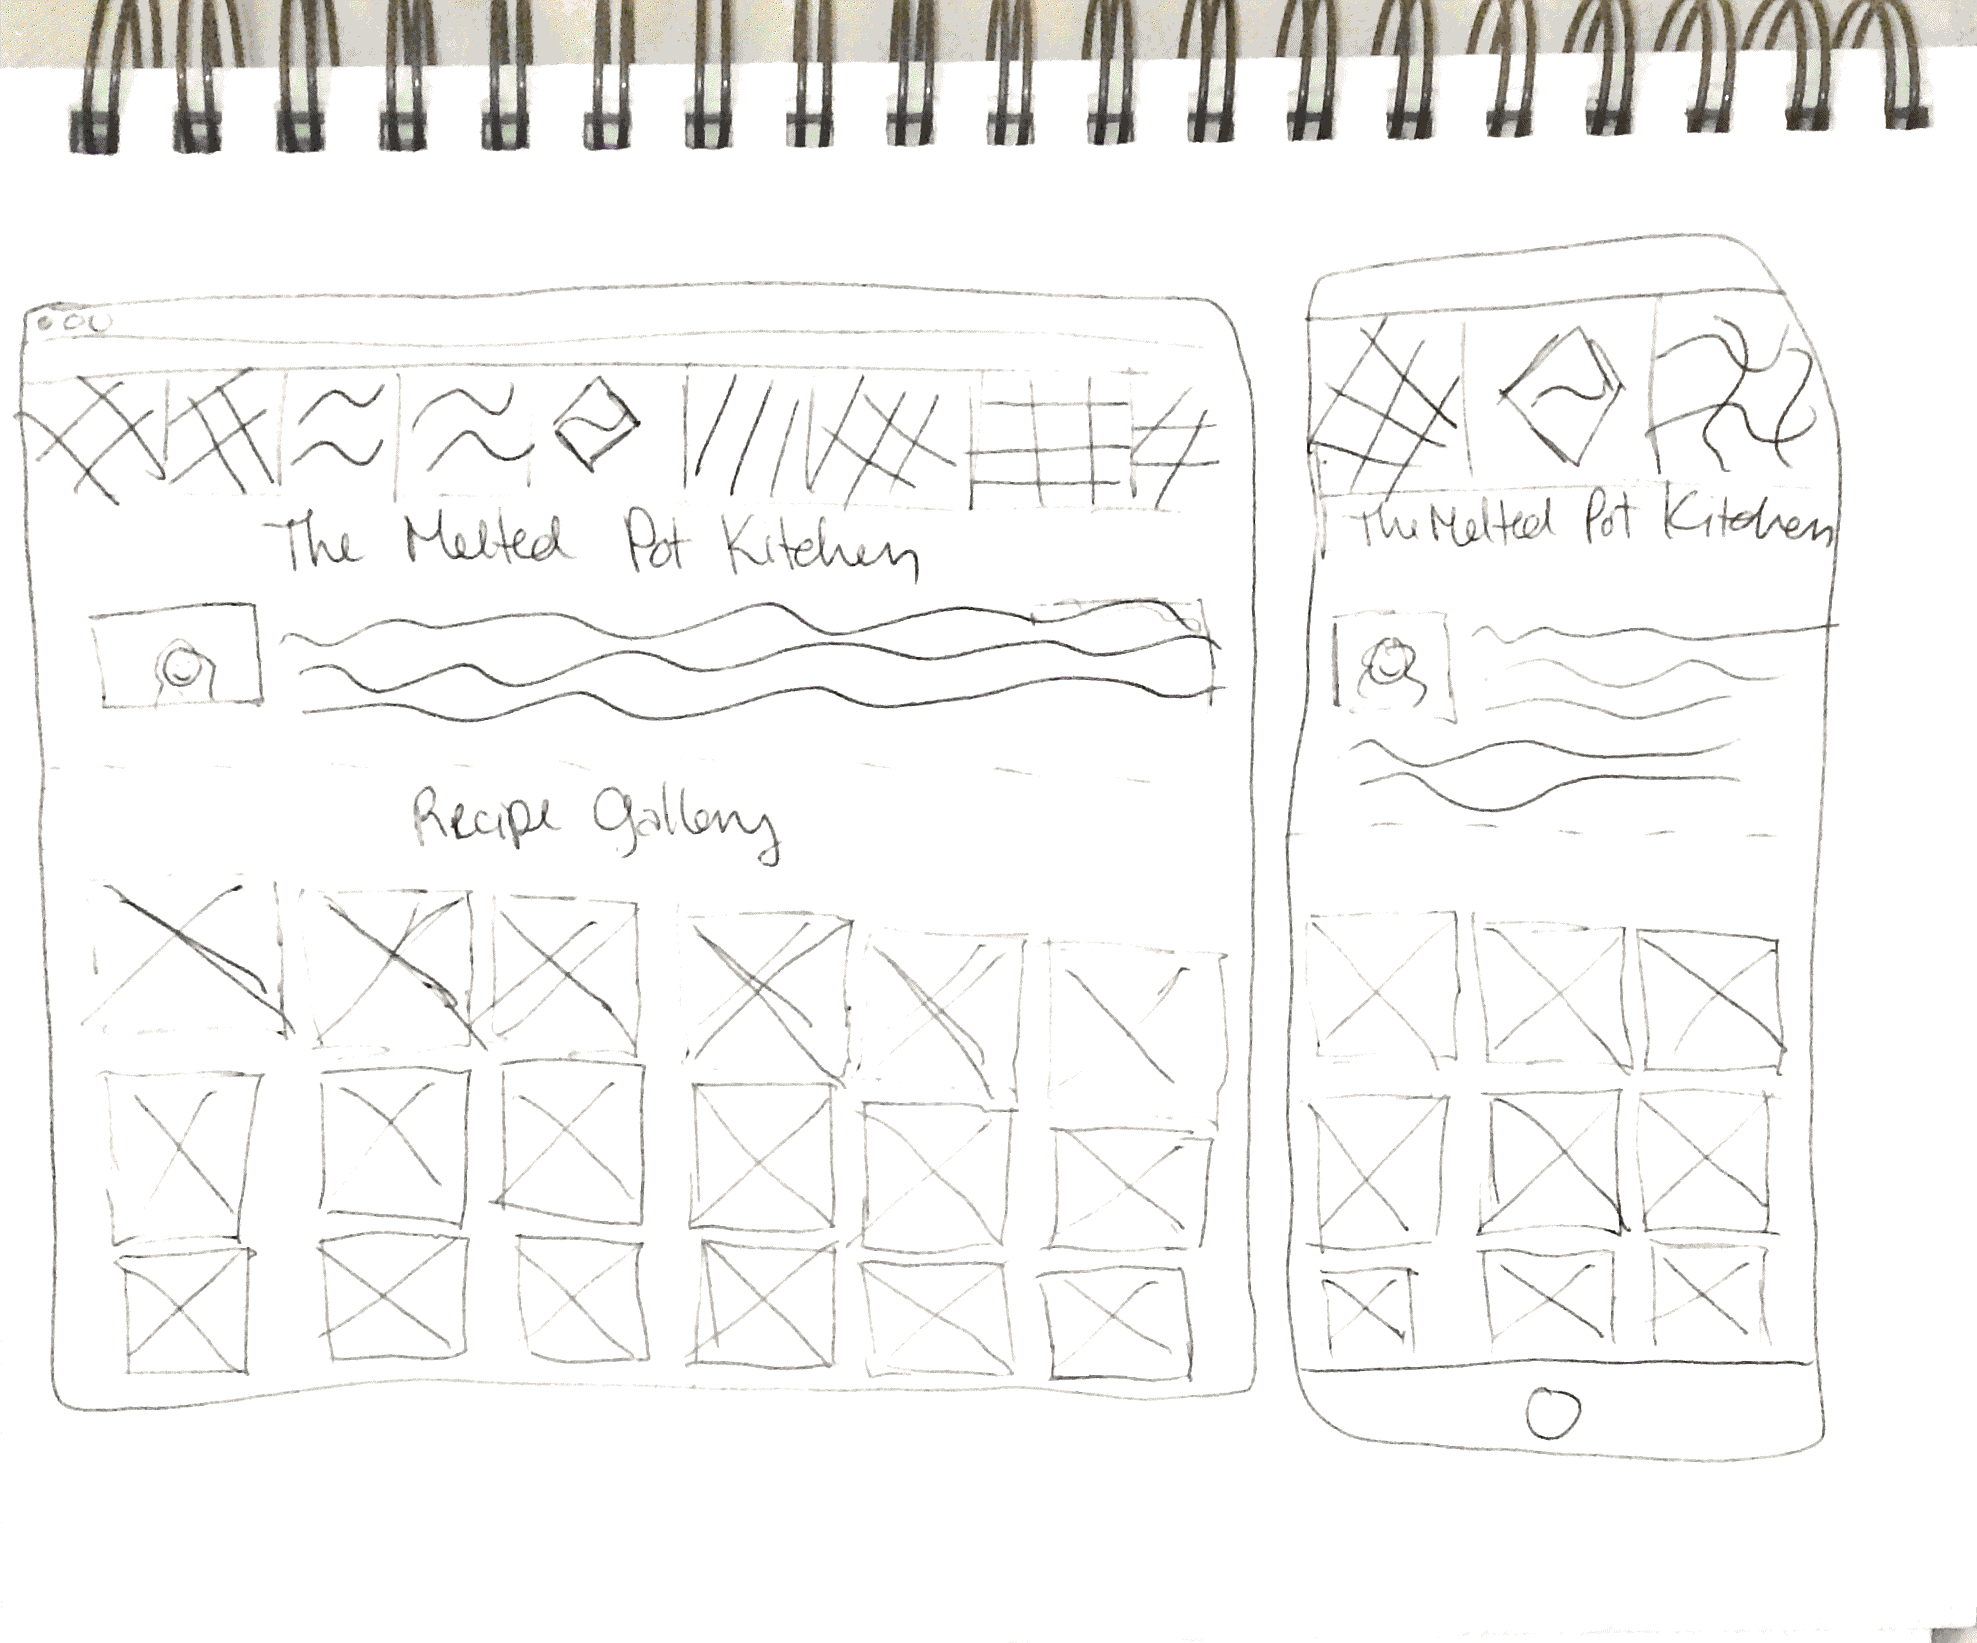 The Melted Pot Kitchen
Recipe Gallery
The Melted Pot Kitchen